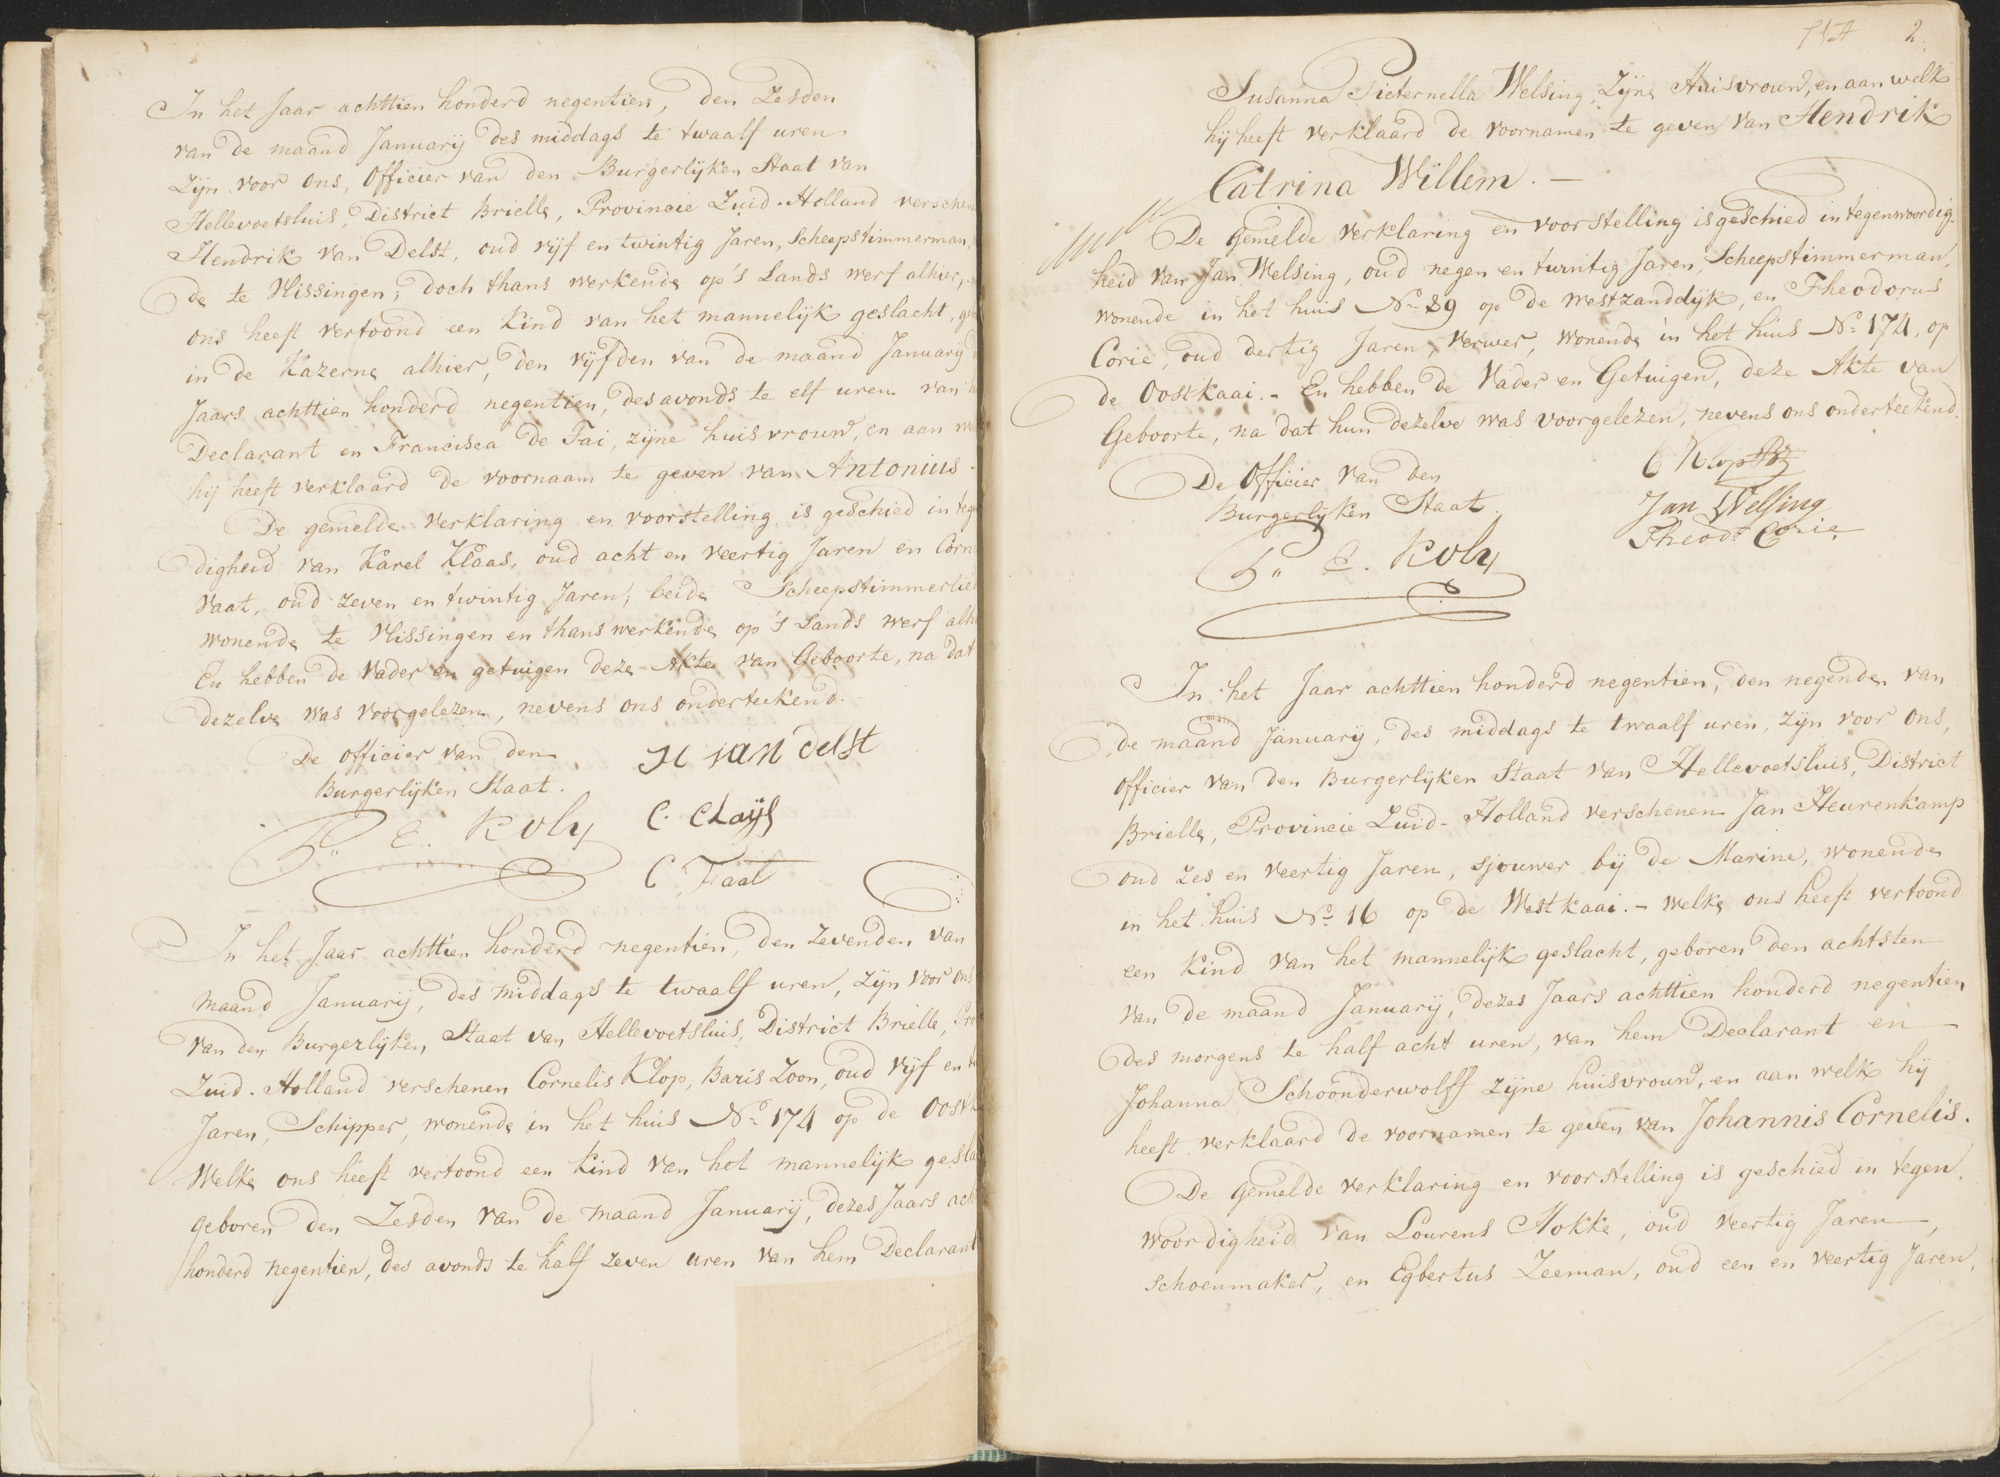 In het Jaar achttien honderd negentien, den Zesden
van de maand Januarij des middags te twaalf uren
zijn voor ons, Officier van den Burgerlijken Staat van
Hellevoetsluis, District Brielle, Provincie Zuid-Holland
Hendrik van Delst, oud vijf en twintig Jaren, Scheepstimmerman,
de te Vlissingen, doch thans werkende op 's Lands werf alhier,
ons heeft vertoond een Kind van het mannelijk geslacht,
in de Kazerne alhier, den vijfden van de maand Januarij
Jaars achttien honderd negentien, des avonds te elf uren van
Declarant en Francisca de Fai, zijne huisvrouw, en aan
hij heeft verklaard de voornaam te geven van Antonius
De gemelde verklaring en voorstelling is geschied in
digheid van Karel Klaas, oud acht en veertig Jaren en
Vaat, oud zeven en twintig Jaren, beide
wonende te Vlissingen en thans werkende op 's Lands werf
En hebben de Vader en getuigen deze Akte van Geboorte, na dat
dezelve was voorgelezen, nevens ons onderteekend.
De officier van den
Burgerlijken Staat.
H van delst
E. Koly
C. Claijs
C. Faat
In het Jaar achttien honderd negentien, den Zevenden van
maand Januarij, des middags te twaalf uren, zijn voor ons
van den Burgerlijken Staat van Hellevoetsluis, District Brielle,
Zuid-Holland verschenen Cornelis Klop, Baris Zoon, oud vijf en
Jaren, Schipper, wonende in het huis No. 174 op de
Welke ons heeft vertoond een Kind van het mannelijk
geboren den Zesden van de maand Januarij, dezes Jaars
honderd negentien, des avonds te half zeven uren van hem Declarant
2.
Susanna Pieternella Welsing, Zijne Huisvrouw, en aan welk
hij heeft verklaard de voornamen te geven van Hendrik
Catrina Willem. —
De gemelde verklaring en voorstelling is geschied in tegenwoordig-
heid van Jan Welsing, oud negen en twintig Jaren, Scheepstimmerman,
wonende in het huis No. 89 op de westzanddijk, en Theodorus
Corie, oud dertig Jaren, verwer, wonende in het huis No. 174, op
de Oostkaai. - En hebben de Vader en Getuigen, deze Akte van
Geboorte, na dat hun dezelve was voorgelezen, nevens ons onderteekend.
De Officier van den
Burgerlijken Staat.
C Klop
Jan Welsing
Theod. Corie
E. Koly
In het Jaar achttien honderd negentien, den negenden van
de maand Januarij, des middags te twaalf uren, zijn voor ons,
officier van den Burgerlijken Staat van Hellevoetsluis, District
Brielle, Provincie Zuid-Holland verschenen Jan Heurenkamp
oud zes en veertig Jaren, sjouwer bij de Marine, wonende
in het huis No. 16 op de Westkaai. - welke ons heeft vertoond
een Kind van het mannelijk geslacht, geboren den achtsten
van de maand Januarij, dezes Jaars achttien honderd negentien
des morgens te half acht uren, van hem Declarant en
Johanna Schoonderwolff zijne huisvrouw, en aan welk hij
heeft verklaard de voornamen te geven van Johannis Cornelis.
De gemelde verklaring en voorstelling is geschied in tegen-
woordigheid van Lourens Hokke, oud veertig Jaren,
schoenmaker, en Egbertus Zeeman, oud een en veertig Jaren,